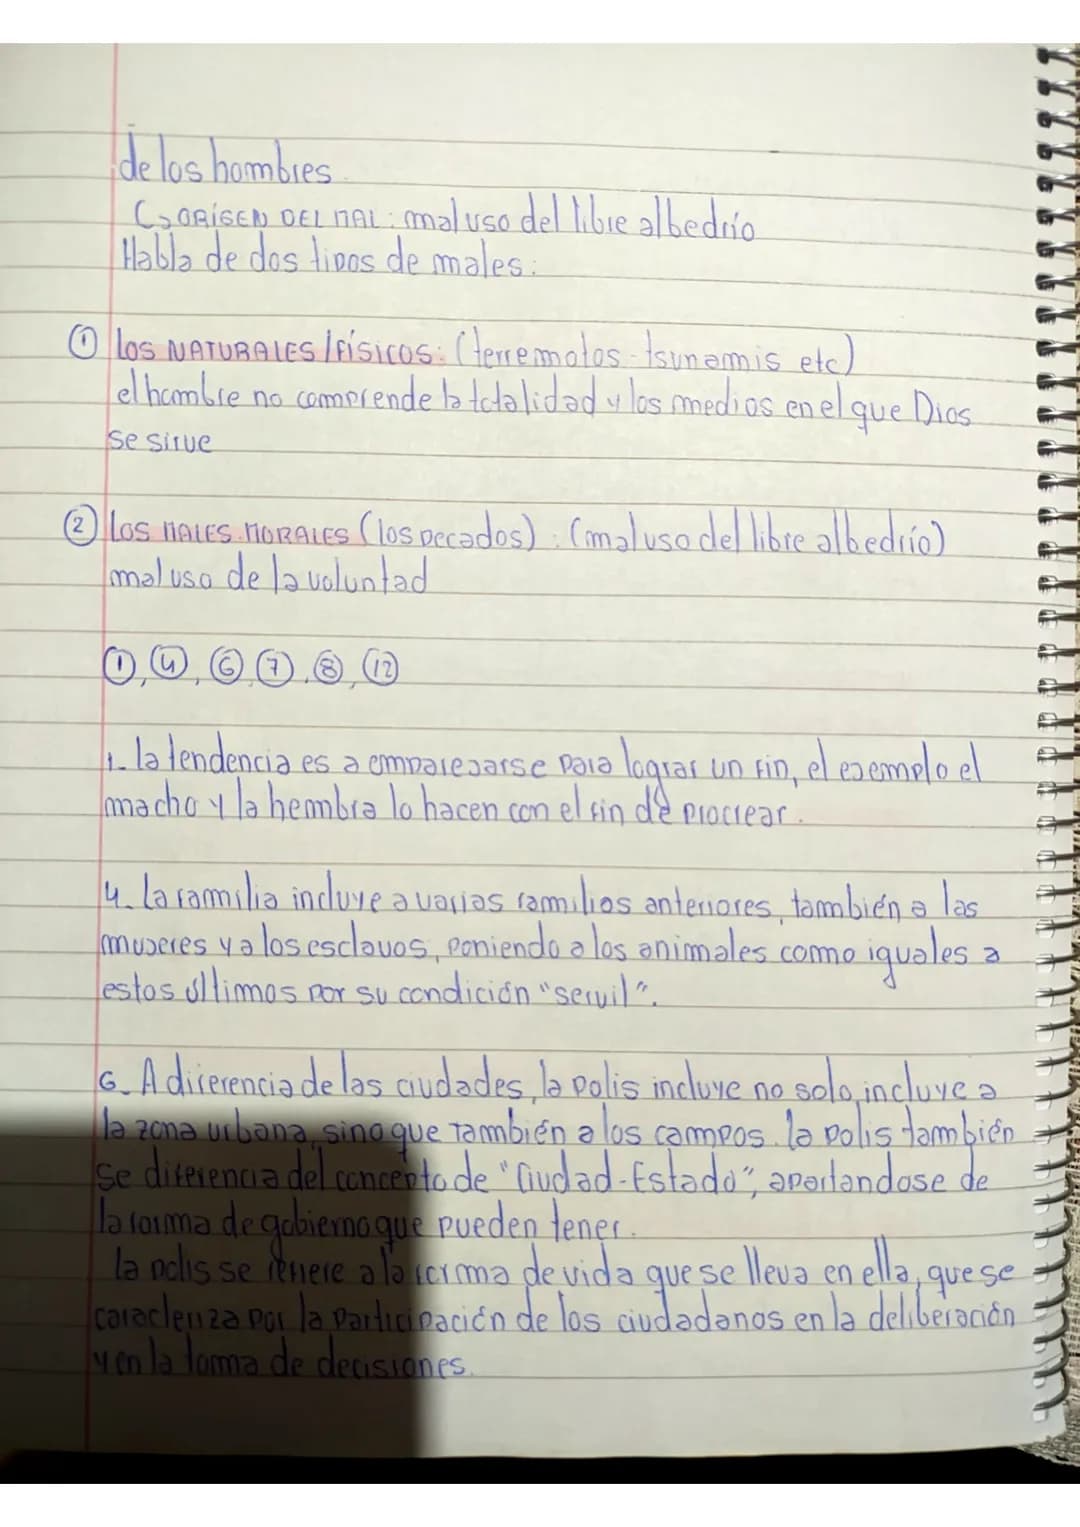 de los hombres.
↳ ORÍGEN DEL MAL: mal uso del libre albedrío
Habla de dos tipos de males:
① los NATURALES/FÍSICOS: (terremotos - tsunamis etc)
el hombre no comprende la totalidad y los medios en el que Dios
se sirve
② LOS MALES MORALES (los pecados): (mal uso del libre albedrío)
mal uso de la voluntad
①, ④, ⑥, ⑦, ⑧, ⑫
1_ la tendencia es a emparejarse para lograr un fin, el ejemplo el
macho y la hembra lo hacen con el fin de procrear.
4_ La familia incluye a varias familias anteriores, también a las
mujeres y a los esclavos, poniendo a los animales como iguales a
estos últimos por su condición "servil".
6_ A diferencia de las ciudades, la polis incluye no solo incluye a
la zona urbana, sino que también a los campos. la polis también
se diferencia del concepto de "Ciudad-Estado", apartandose de
la forma de gobierno que pueden tener.
la polis se refiere a la forma de vida que se lleva en ella, que se
caracteriza por la participación de los ciudadanos en la deliberación
y en la toma de decisiones.